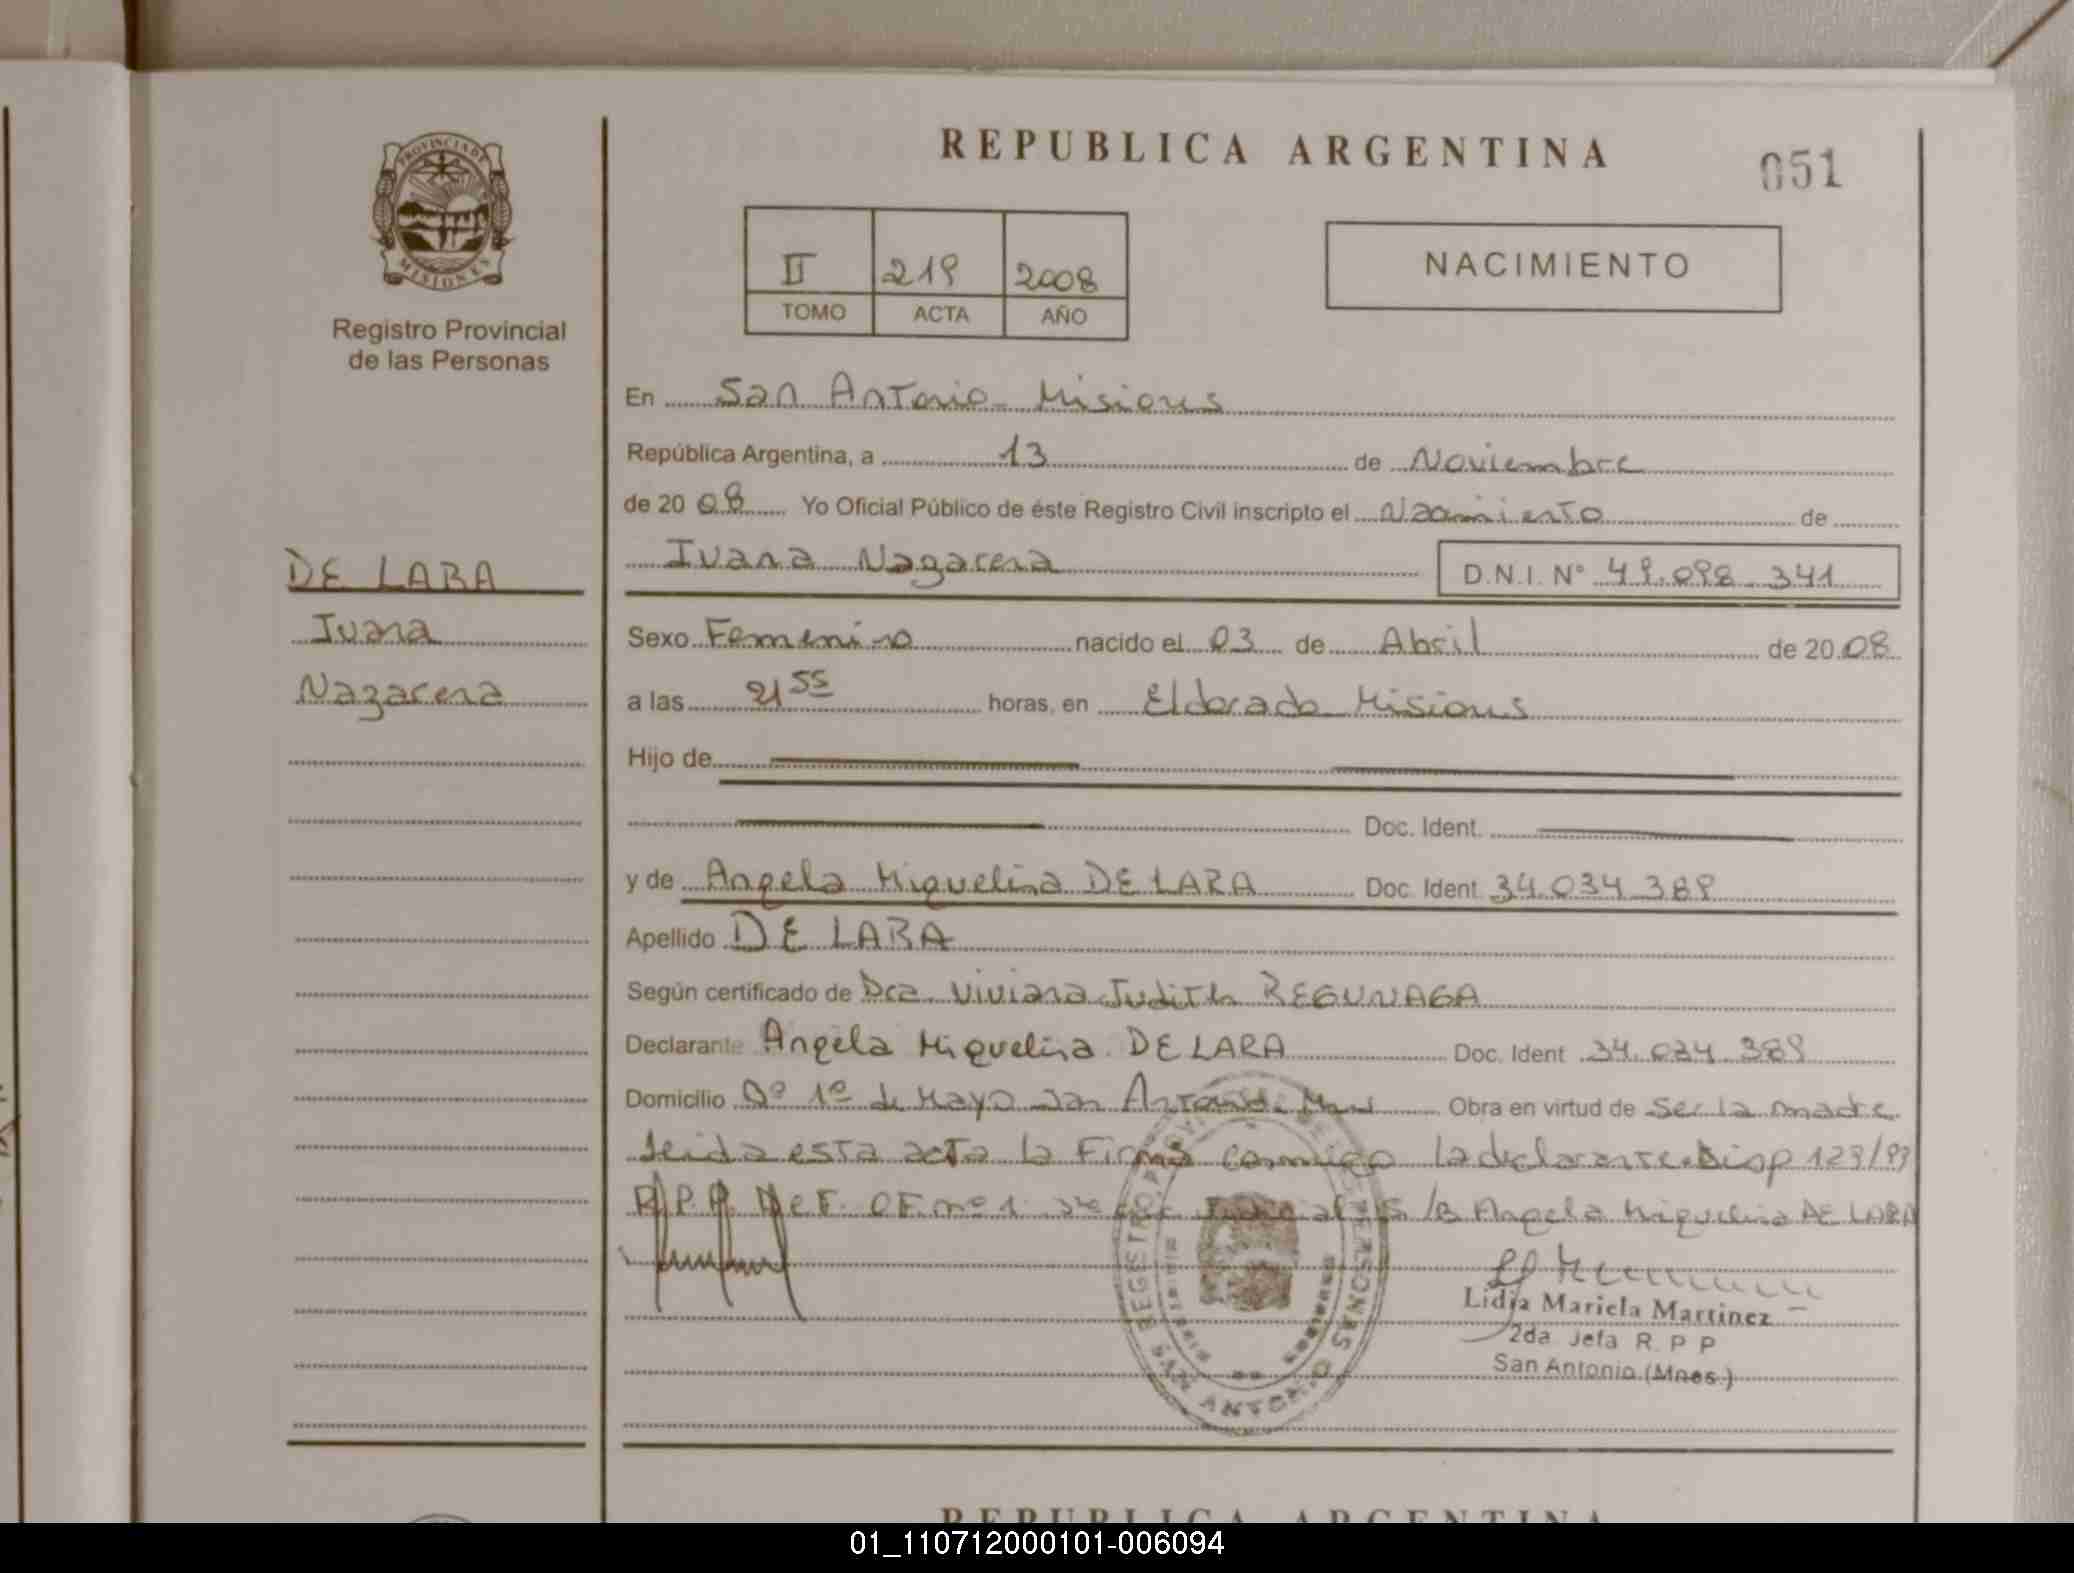 REPUBLICA ARGENTINA
051
PROVINCIA DE
MISIONES
Registro Provincial
de las Personas
II 219 2008
TOMO ACTA AÑO
NACIMIENTO
En San Antonio - Misiones
República Argentina, a 13 de Noviembre
de 20 08 Yo Oficial Público de éste Registro Civil inscripto el Nacimiento de
Ivana Nazarena D.N.I. Nº 49.098.341
DE LARA
Ivana
Nazarena
Sexo Femenino nacido el 03 de Abril de 20 08
a las 21 55 horas, en Eldorado Misiones
Hijo de
Doc. Ident.
y de Angela Miquelina DE LARA Doc. Ident. 34.034.389
Apellido DE LARA
Según certificado de Dra. Viviana Judith REGUNAGA
Declarante Angela Miquelina DE LARA Doc. Ident 34.034.389
Domicilio Bº 1º de Mayo San Antonio Mnes Obra en virtud de Ser la madre
Leida esta acta la Firma conmigo la declarante. Disp 123/93
R.P.P. OF. nº 1 S/B Angela Miquelina DE LARA
REGISTRO PERSONAS
SAN ANTONIO
Misiones
Lidia Mariela Martinez
2da Jefa R. P P
San Antonio (Mnes.)
REPUBLICA ARGENTINA
01_110712000101-006094